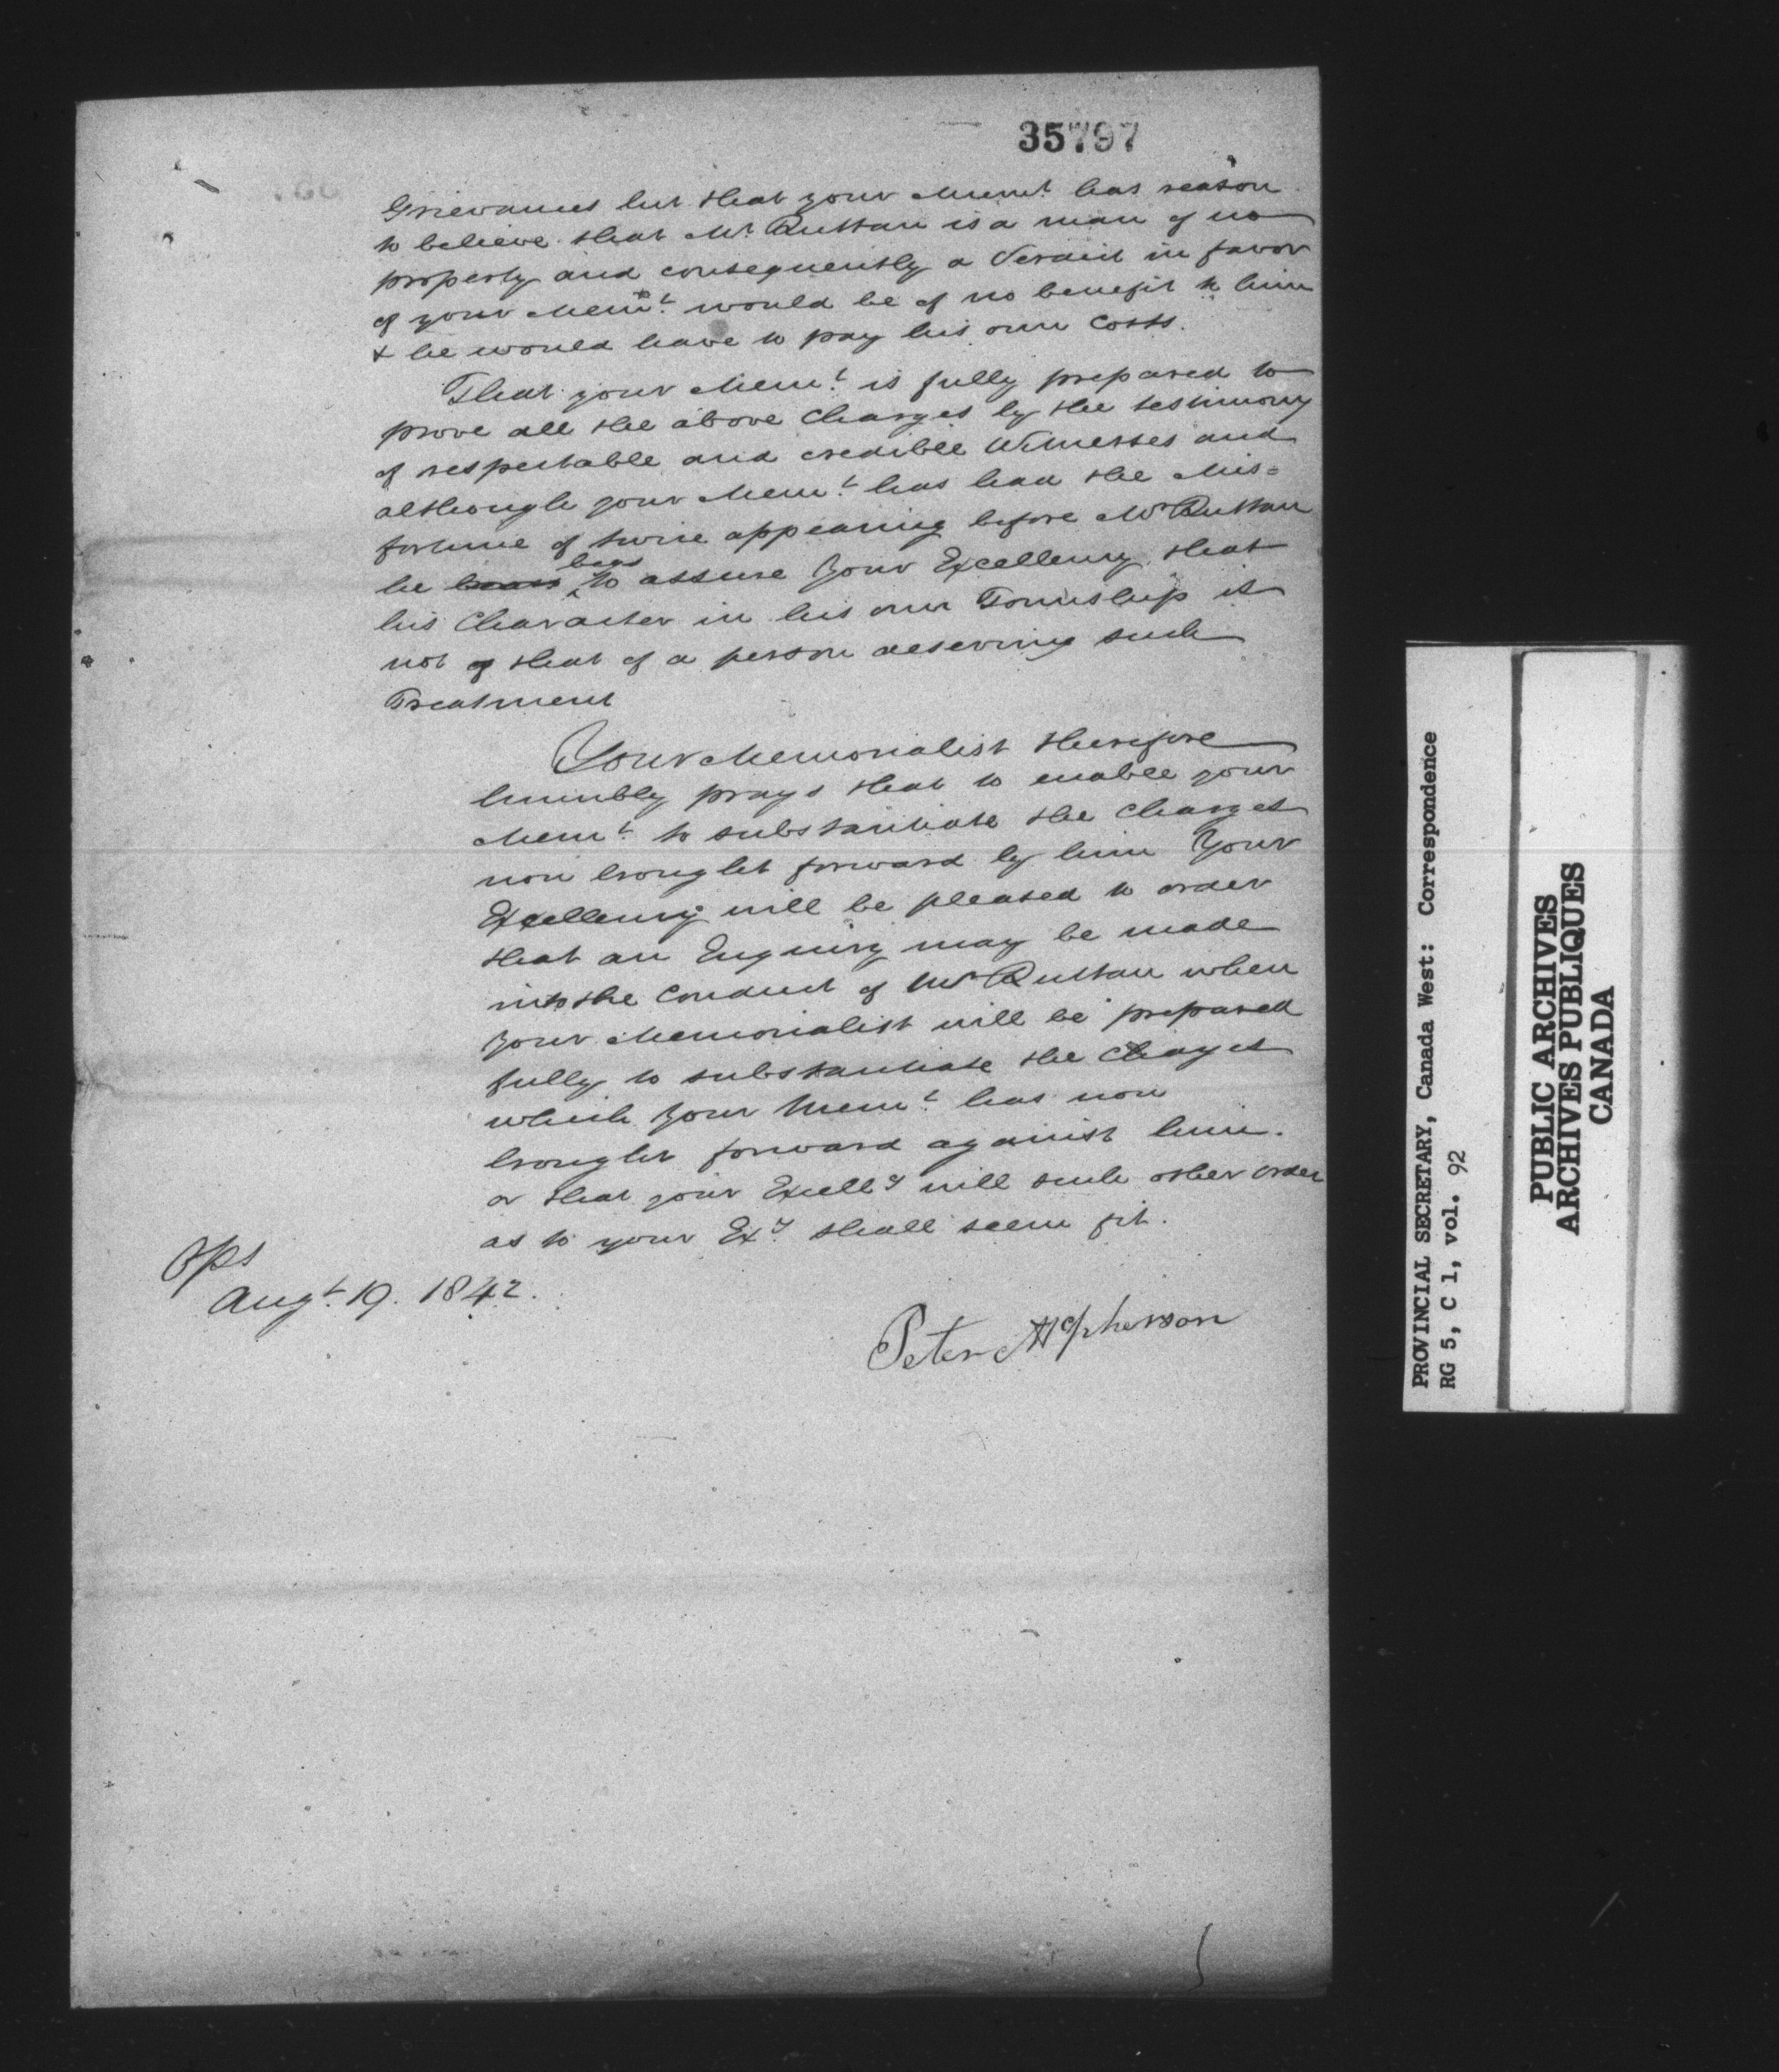 35797
Grievances but that your Memt. has reason
to believe that Mr. Ruttan is a man of no
property and consequently a Verdict in favor
of your Memt. would be of no benefit to him
& he would have to pay his own Costs.
That your Memt. is fully prepared to
prove all the above Charges by the testimony
of respectable and credible Witnesses and
although your Memt. has had the Mis=
fortune of twice appearing before Mr Ruttan
he begs to assure Your Excellency that
his Character in his own Township is
not of that of a person deserving such
Treatment
Your Memorialist therefore
humbly prays that to enable your
Memt. to substantiate the Charges
now brought forward by him Your
Excellency will be pleased to order
that an Enquiry may be made
into the Conduct of Mr Ruttan when
your Memorialist will be prepared
fully to substantiate the Charges
which your Memt. has now
brought forward against him.
or that your Excelly will such other order
as to your Exy. shall seem fit.
Ops
Augt. 19. 1842.
Peter McPherson
PROVINCIAL SECRETARY, Canada West: Correspondence
RG 5, C 1, vol. 92
PUBLIC ARCHIVES
ARCHIVES PUBLIQUES
CANADA